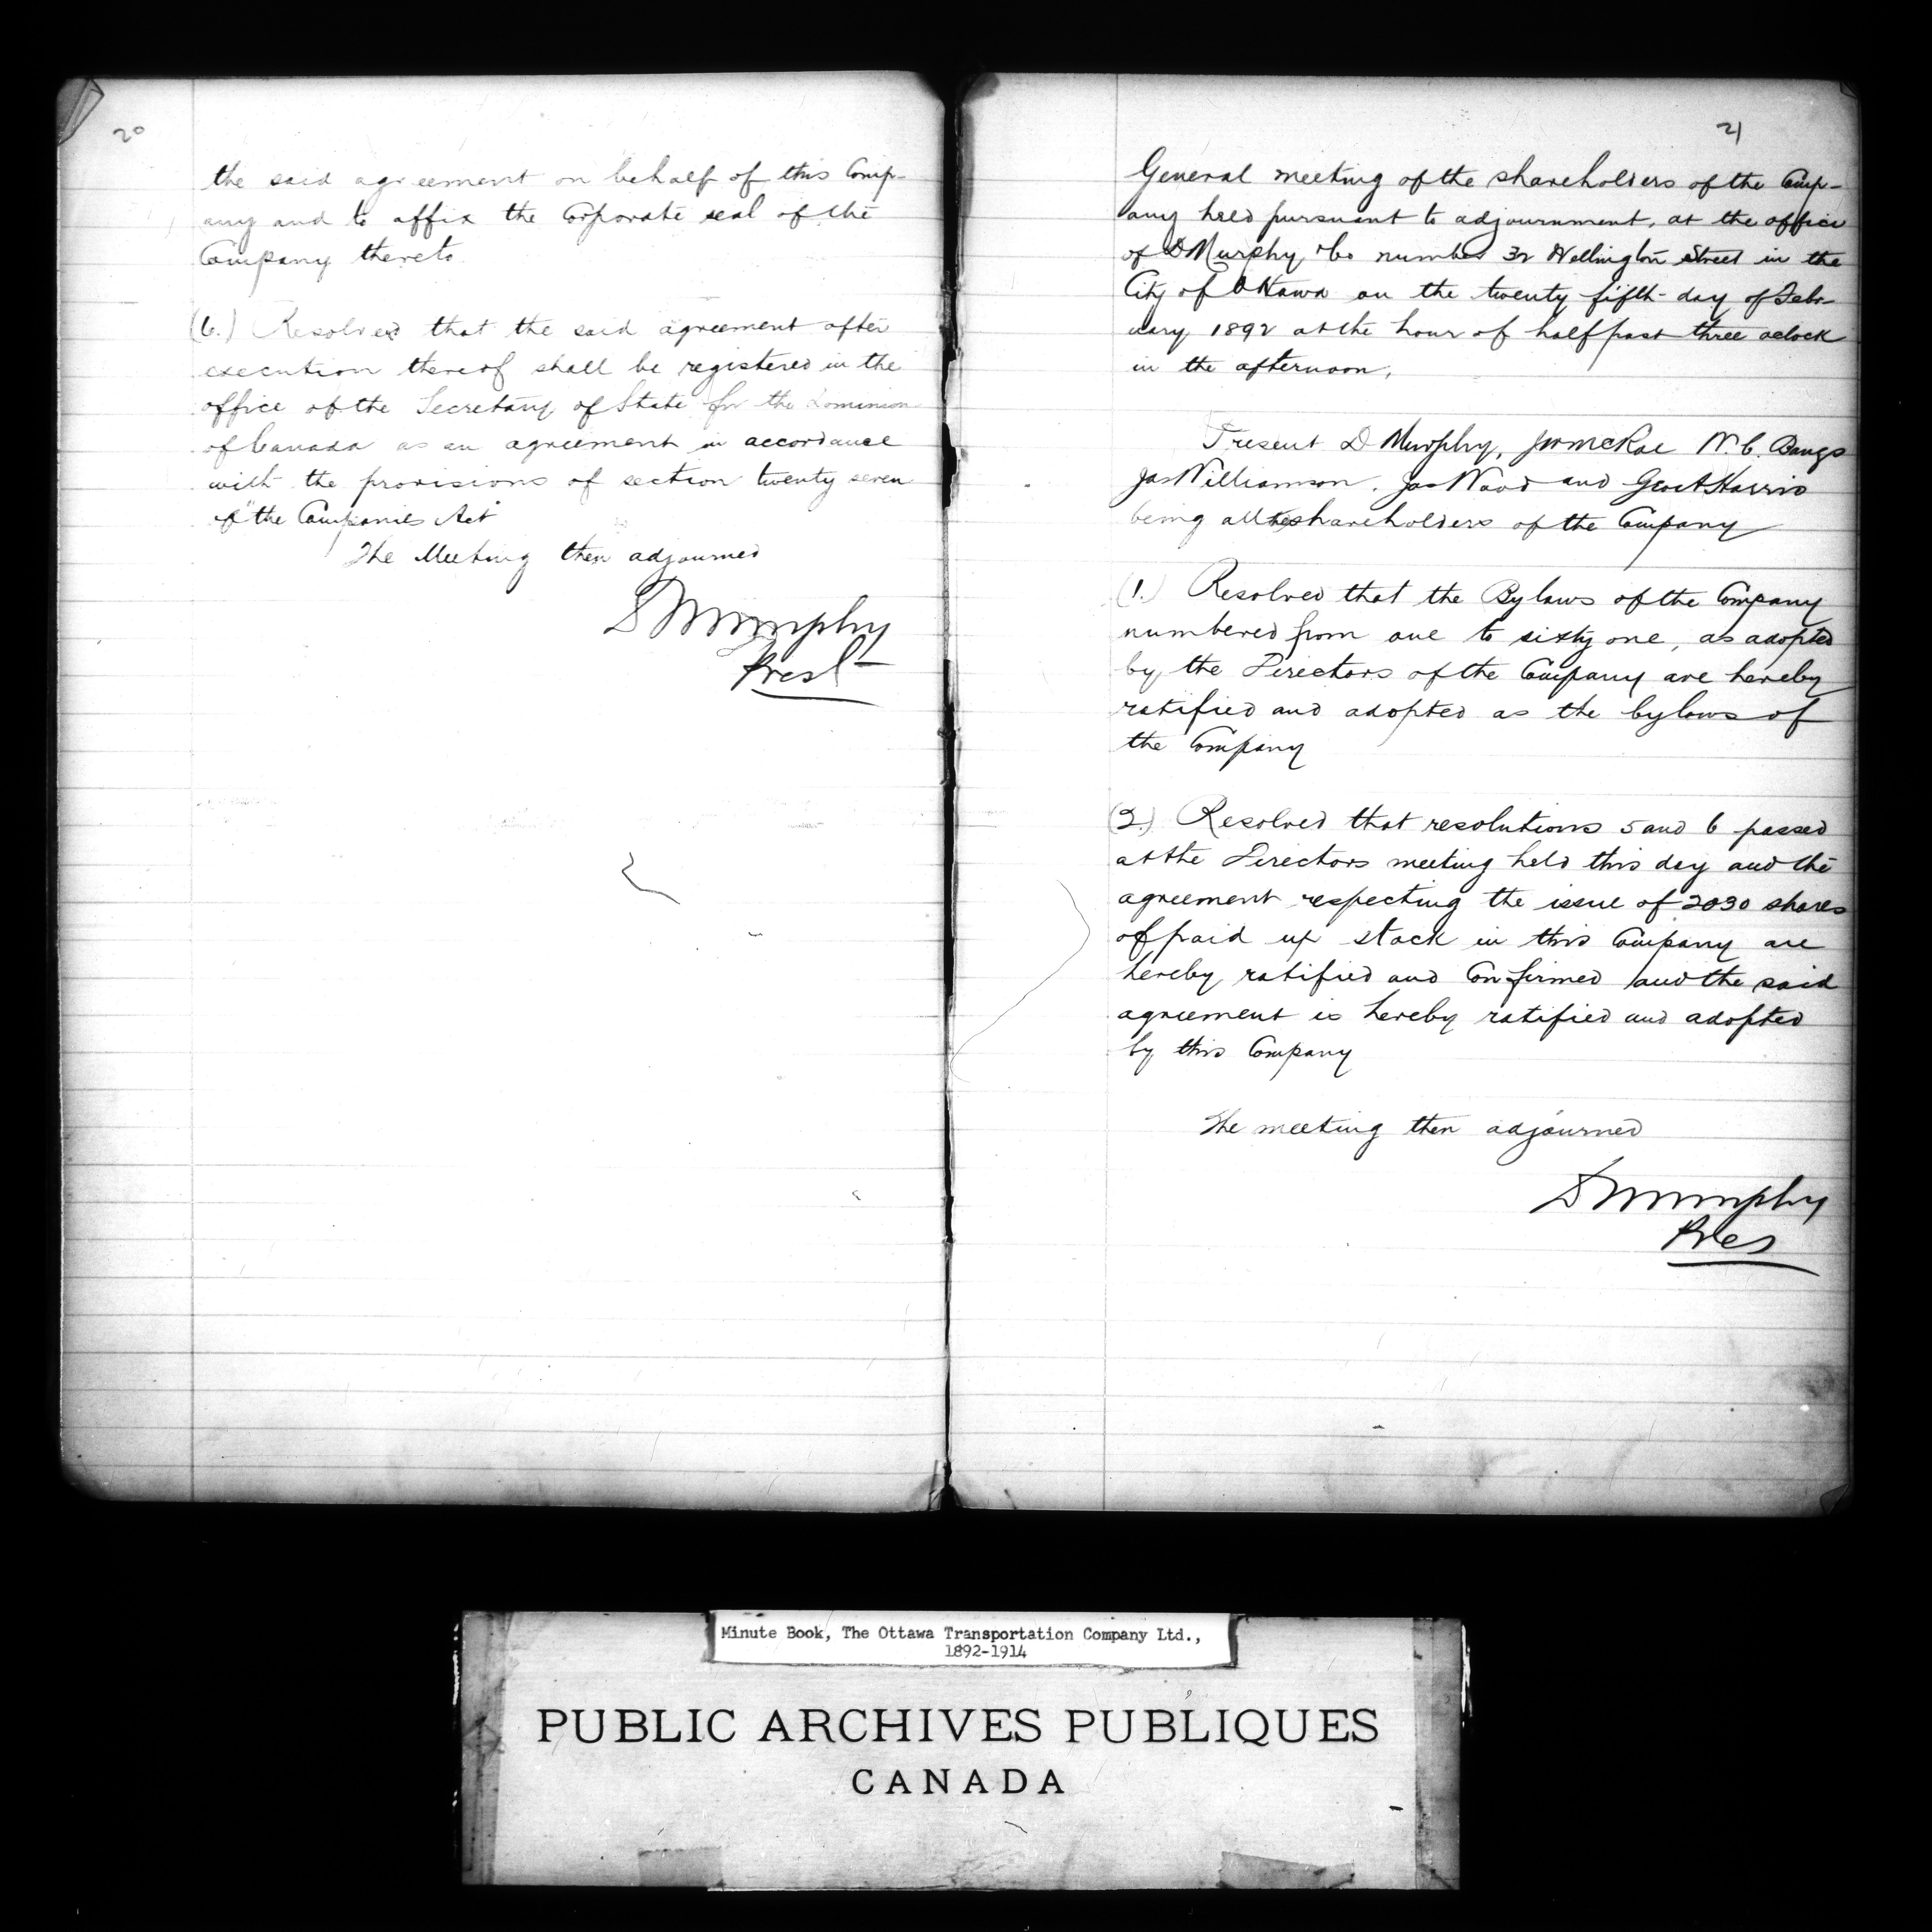 20
the said agreement on behalf of this Comp-
any and to affix the Corporate seal of the
Company thereto
(6.) Resolved that the said agreement after
execution thereof shall be registered in the
office of the Secretary of State for the Dominion
of Canada as an agreement in accordance
with the provisions of section twenty seven
of "the Companies Act"
The Meeting then adjourned
D Murphy
Prest
21
General meeting of the shareholders of the Comp-
any held pursuant to adjournment, at the office
of D Murphy & Co number 32 Wellington Street in the
City of Ottawa on the twenty fifth day of Febr-
uary 1892 at the hour of half past three oclock
in the afternoon,
Present D Murphy, JW McRae W. C. Bangs
Jas Williamson, Jas Wood and Geo A Harris
being all the shareholders of the Company
(1.) Resolved that the Bylaws of the Company
numbered from one to sixty one, as adopted
by the Directors of the Company are hereby
ratified and adopted as the bylaws of
the Company
(2.) Resolved that resolutions 5 and 6 passed
at the Directors meeting held this day and the
agreement respecting the issue of 2030 shares
of paid up stock in this Company are
hereby ratified and Confirmed and the said
agreement is hereby ratified and adopted
by this Company
The meeting then adjourned
D Murphy
Pres
Minute Book, The Ottawa Transportation Company Ltd.,
1892-1914
PUBLIC ARCHIVES PUBLIQUES
CANADA